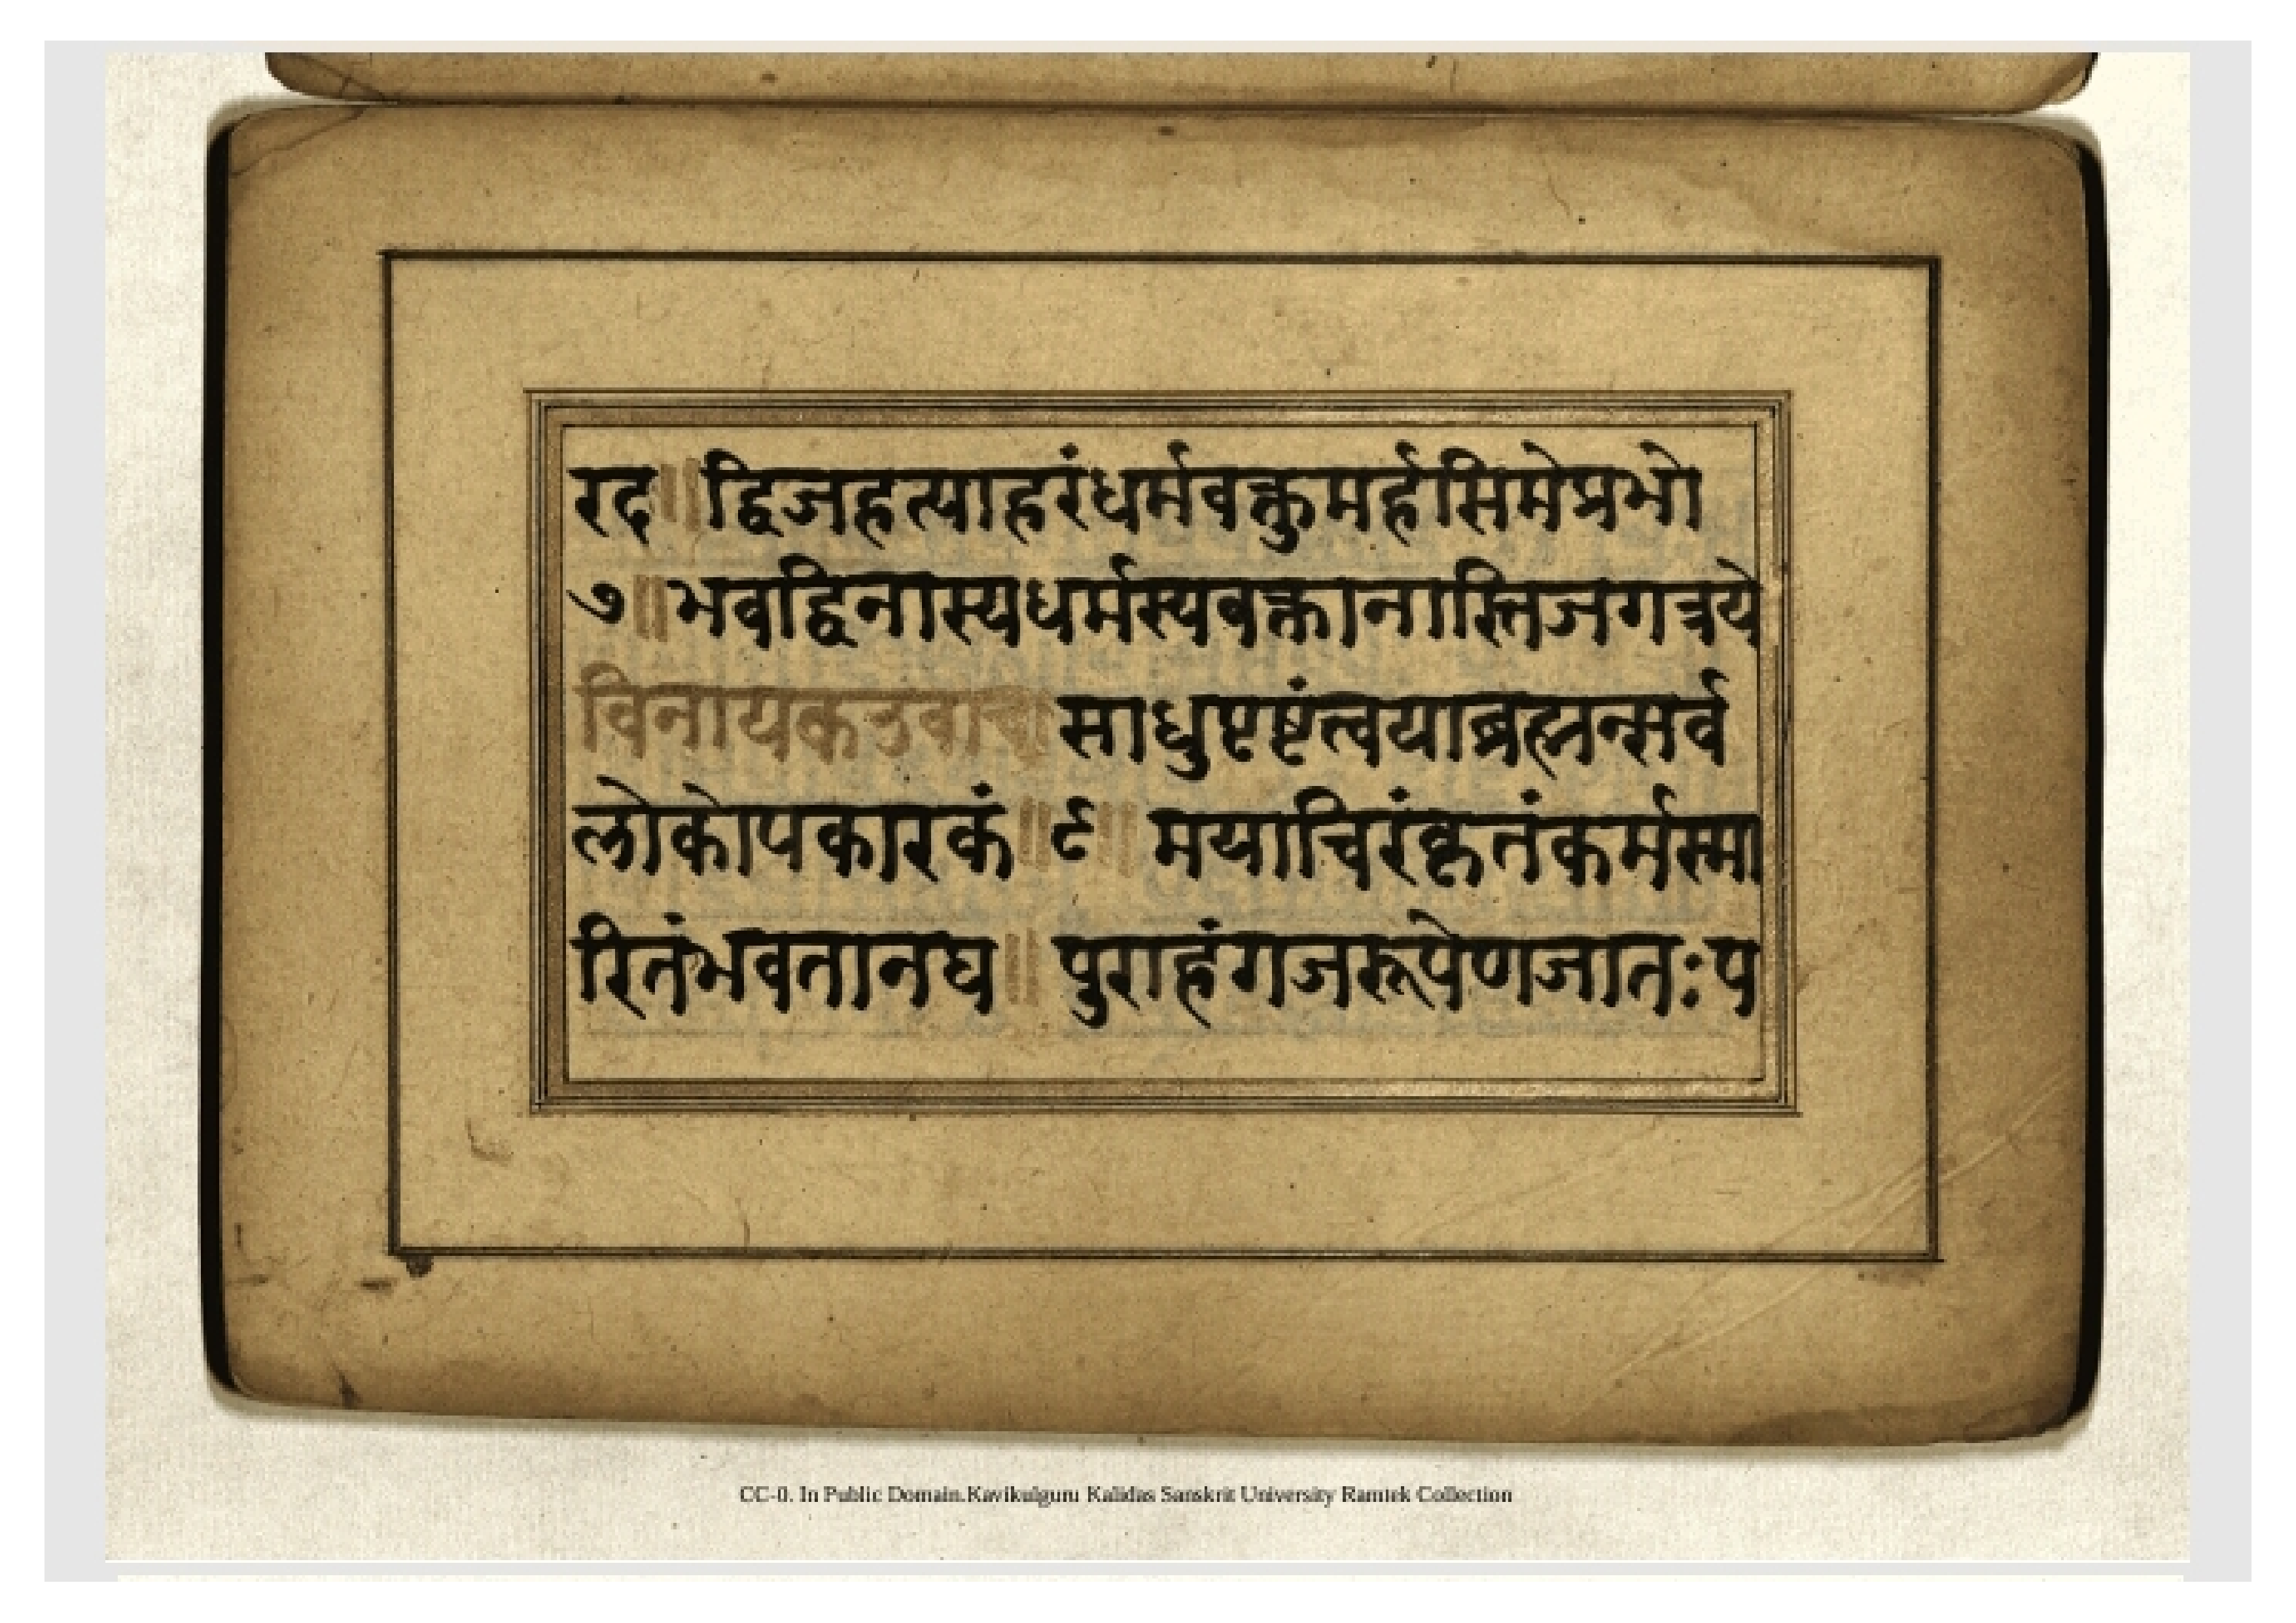 रद॥द्विजहत्याहरंधर्मवक्तुमर्हसिमेप्रभो
७॥भवद्विनास्यधर्मस्यवक्तानास्तिजगत्रये
विनायकउवाच॥साधुपृष्टंत्वयाब्रह्मन्सर्व
लोकोपकारकं॥९॥मयाचिरंकृतंकर्मस्मा
रितंभवतानघ॥पुराहंगजरूपेणजातःप
CC-0. In Public Domain.Kavikulguru Kalidas Sanskrit University Ramtek Collection